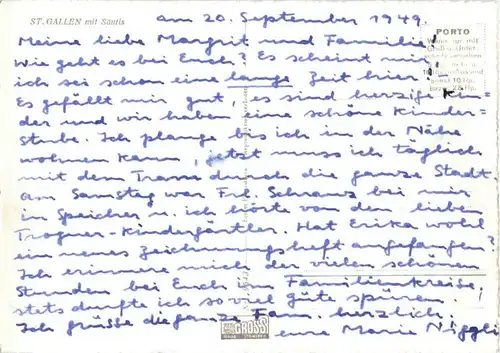 ST. GALLEN mit Säntis
am 20. September 1949.
PORTO
Meine liebe Margrit und Familie!
Wie geht es bei Euch? Es scheint mir
ich sei schon eine lange Zeit hier! -
Es gefällt mir gut, es sind herzige Kin-
der und wir haben eine schöne Kinder-
stube. Ich plange bis ich in der Nähe
wohnen kann, jetzt muss ich täglich
mit dem Tram durch die ganze Stadt
am Samstag war Frs. Schranz bei mir
in Speicher u. ich hörte von den lieben
Trogner-Kindergärtler. Hat Erika wohl
ein neues Zeichnungsheft angefangen?
Ich erinnere mich der vielen schönen
Stunden bei Euch im Familienkreise,
stets durfte ich so viel Güte spüren.
Ich grüsse die ganze Fam. herzlich.
GROSS
eure Marie Niggli